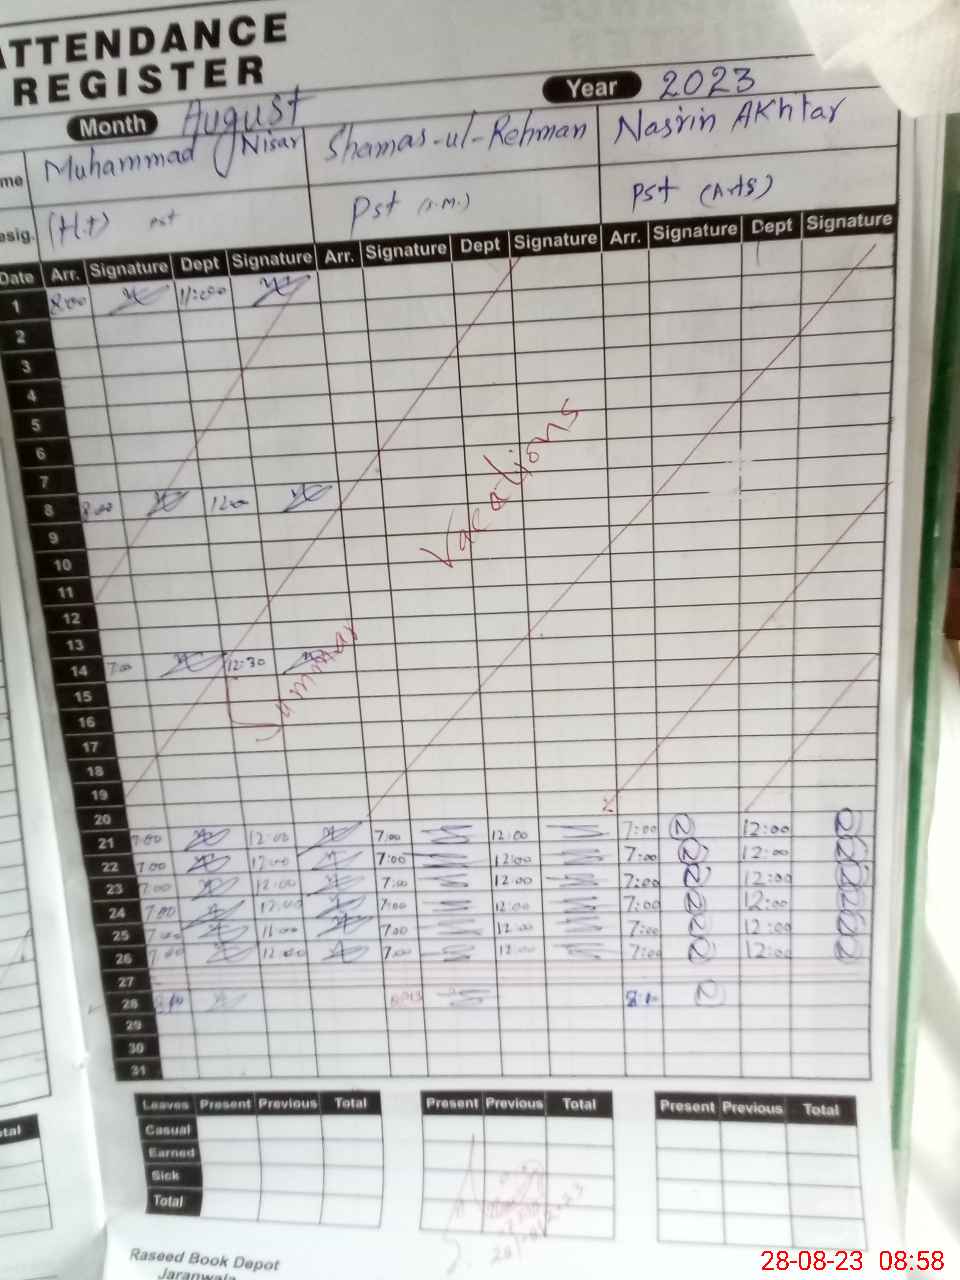 ATTENDANCE
REGISTER
Month August Year 2023
me Muhammad Nisar Shamas-ul-Rehman Nasrin Akhtar
esig. (H.t) Pst Pst Pst (Arts)
Date Arr. Signature Dept Signature Arr. Signature Dept Signature Arr. Signature Dept Signature
1 8:00 11:00
2
3
4
5
6
7
8 8:00 12:00
9
10
11
12
13
14 7:00 12:30
Summar Vacations
15
16
17
18
19
20
21 7:00 12:00 7:00 12:00 7:00 12:00
22 7:00 12:00 7:00 12:00 7:00 12:00
23 7:00 12:00 7:00 12:00 7:00 12:00
24 7:00 12:00 7:00 12:00 7:00 12:00
25 7:00 7:00 12:00 7:00 12:00
26 7:00 12:00 7:00 12:00 7:00 12:00
27
28
29
30
31
Leaves Present Previous Total Present Previous Total Present Previous Total
Casual
Earned
Sick
Total
tal
Raseed Book Depot
Jaranwala
28-08-23 08:58